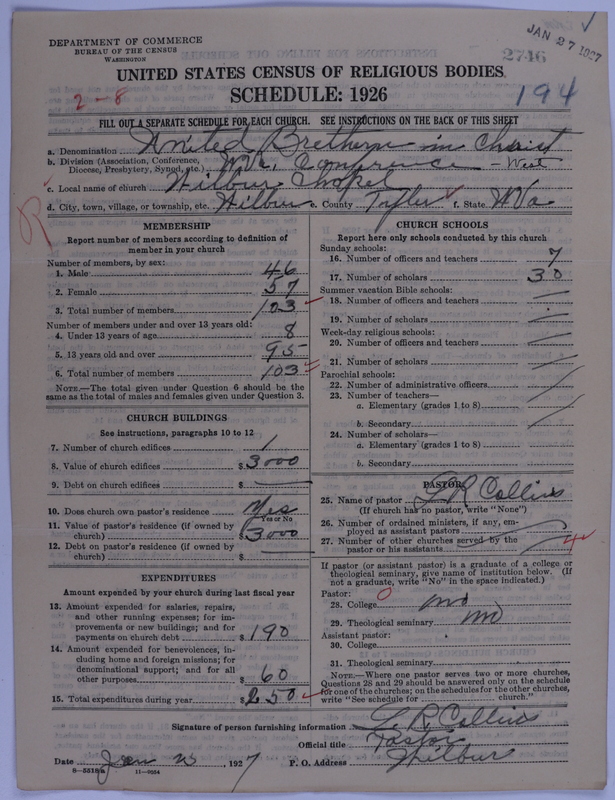 JAN 27 1927
DEPARTMENT OF COMMERCE
BUREAU OF THE CENSUS
WASHINGTON
2746
UNITED STATES CENSUS OF RELIGIOUS BODIES
2-8
SCHEDULE: 1926
194
FILL OUT A SEPARATE SCHEDULE FOR EACH CHURCH. SEE INSTRUCTIONS ON THE BACK OF THIS SHEET
a. Denomination United Brethern in Christ
b. Division (Association, Conference, Diocese, Presbytery, Synod, etc.) W Va. Conference - West
c. Local name of church Wilbur Chapel
d. City, town, village, or township, etc. Wilbur e. County Tyler f. State W Va
R
MEMBERSHIP
Report number of members according to definition of
member in your church
Number of members, by sex:
1. Male 46
2. Female 57
3. Total number of members 103
Number of members under and over 13 years old:
4. Under 13 years of age 8
5. 13 years old and over 95
6. Total number of members 103
NOTE.—The total given under Question 6 should be the
same as the total of males and females given under Question 3.
CHURCH BUILDINGS
See instructions, paragraphs 10 to 12
7. Number of church edifices 1
8. Value of church edifices $ 3000
9. Debt on church edifices $
10. Does church own pastor's residence Yes
Yes or No
11. Value of pastor's residence (if owned by
church) $ 3000
12. Debt on pastor's residence (if owned by
church) $
EXPENDITURES
Amount expended by your church during last fiscal year
13. Amount expended for salaries, repairs,
and other running expenses; for im-
provements or new buildings; and for
payments on church debt $ 190
14. Amount expended for benevolences, in-
cluding home and foreign missions; for
denominational support; and for all
other purposes $ 60
15. Total expenditures during year $ 250
CHURCH SCHOOLS
Report here only schools conducted by this church
Sunday schools:
16. Number of officers and teachers 7
17. Number of scholars 30
Summer vacation Bible schools:
18. Number of officers and teachers
19. Number of scholars
Week-day religious schools:
20. Number of officers and teachers
21. Number of scholars
Parochial schools:
22. Number of administrative officers
23. Number of teachers—
a. Elementary (grades 1 to 8)
b. Secondary
24. Number of scholars—
a. Elementary (grades 1 to 8)
b. Secondary
PASTOR
25. Name of pastor L R Collins
(If church has no pastor, write "None")
26. Number of ordained ministers, if any, em-
ployed as assistant pastors
27. Number of other churches served by the
pastor or his assistants 4
If pastor (or assistant pastor) is a graduate of a college or
theological seminary, give name of institution below. (If
not a graduate, write "No" in the space indicated.)
Pastor: 0
28. College no
29. Theological seminary no
Assistant pastor:
30. College
31. Theological seminary
NOTE.—Where one pastor serves two or more churches,
Questions 28 and 29 should be answered only on the schedule
for one of the churches; on the schedules for the other churches,
write "See schedule for church."
Signature of person furnishing information L. R Collins
Official title Pastor
Date Jan 1927 P. O. Address Wilbur
8—5518a 11—9034